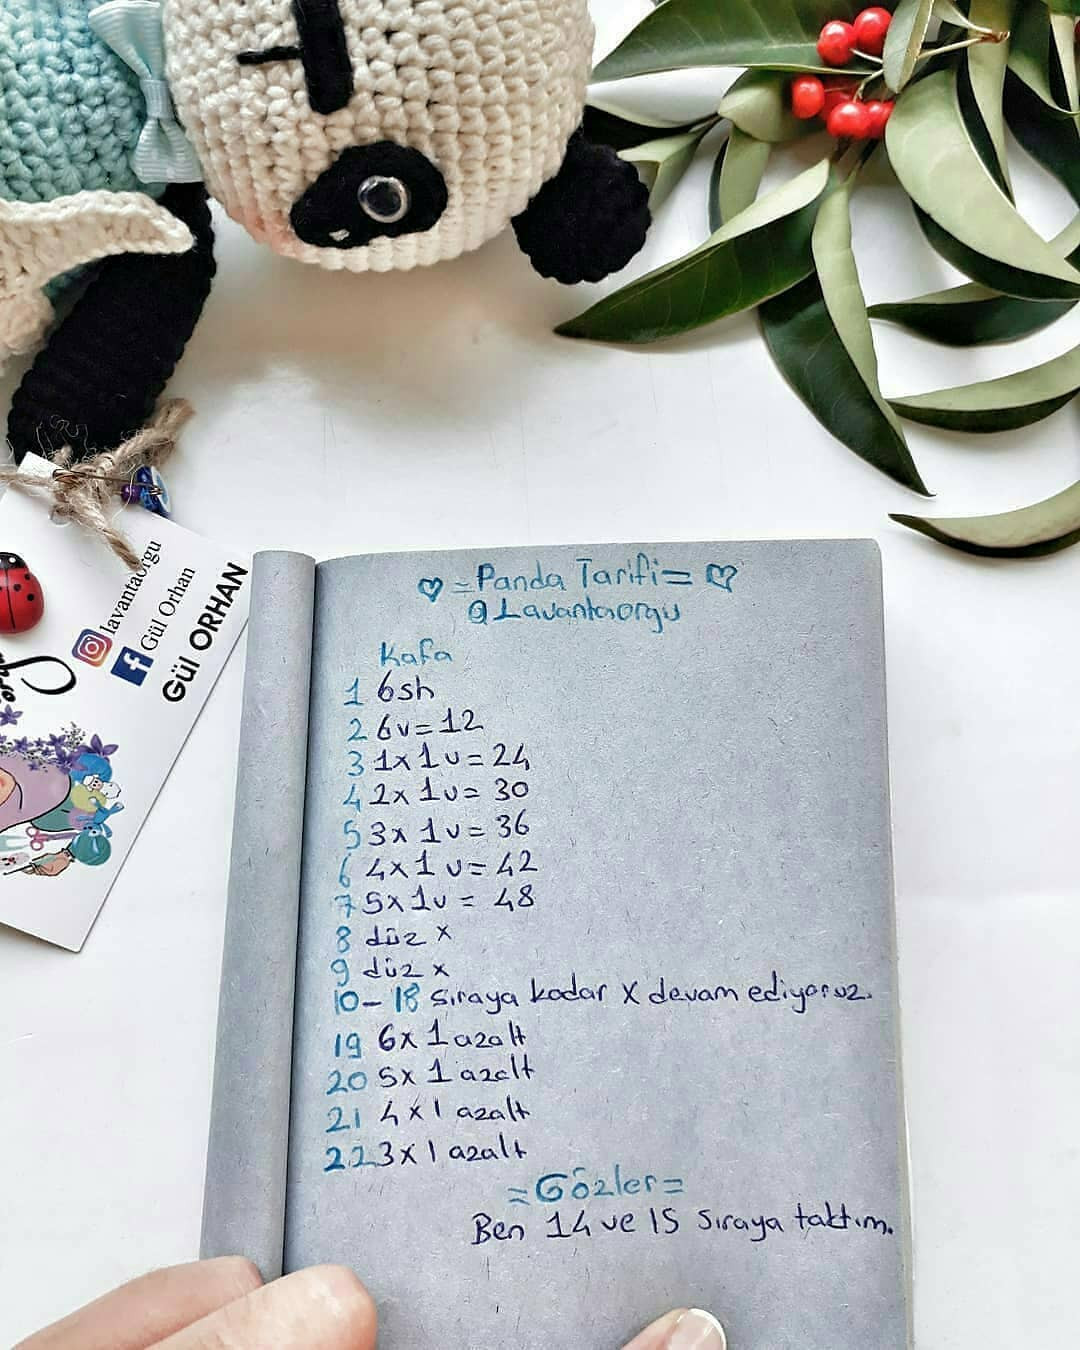 lavantaorgu
Gül Orhan
Gül ORHAN
=Panda Tarifi=
@Lavantaorgu
Kafa
1 6sh
2 6v=12
3 1x1v=24
4 2x 1v= 30
5 3x 1v= 36
6 4x1 v= 42
7 5x1v = 48
8 düz x
9 düz x
10-18 sıraya kadar x devam ediyoruz.
19 6x 1 azalt
20 5x 1 azalt
21 4x1 azalt
22 3x1 azalt
=Gözler=
Ben 14 ve 15 sıraya taktım.